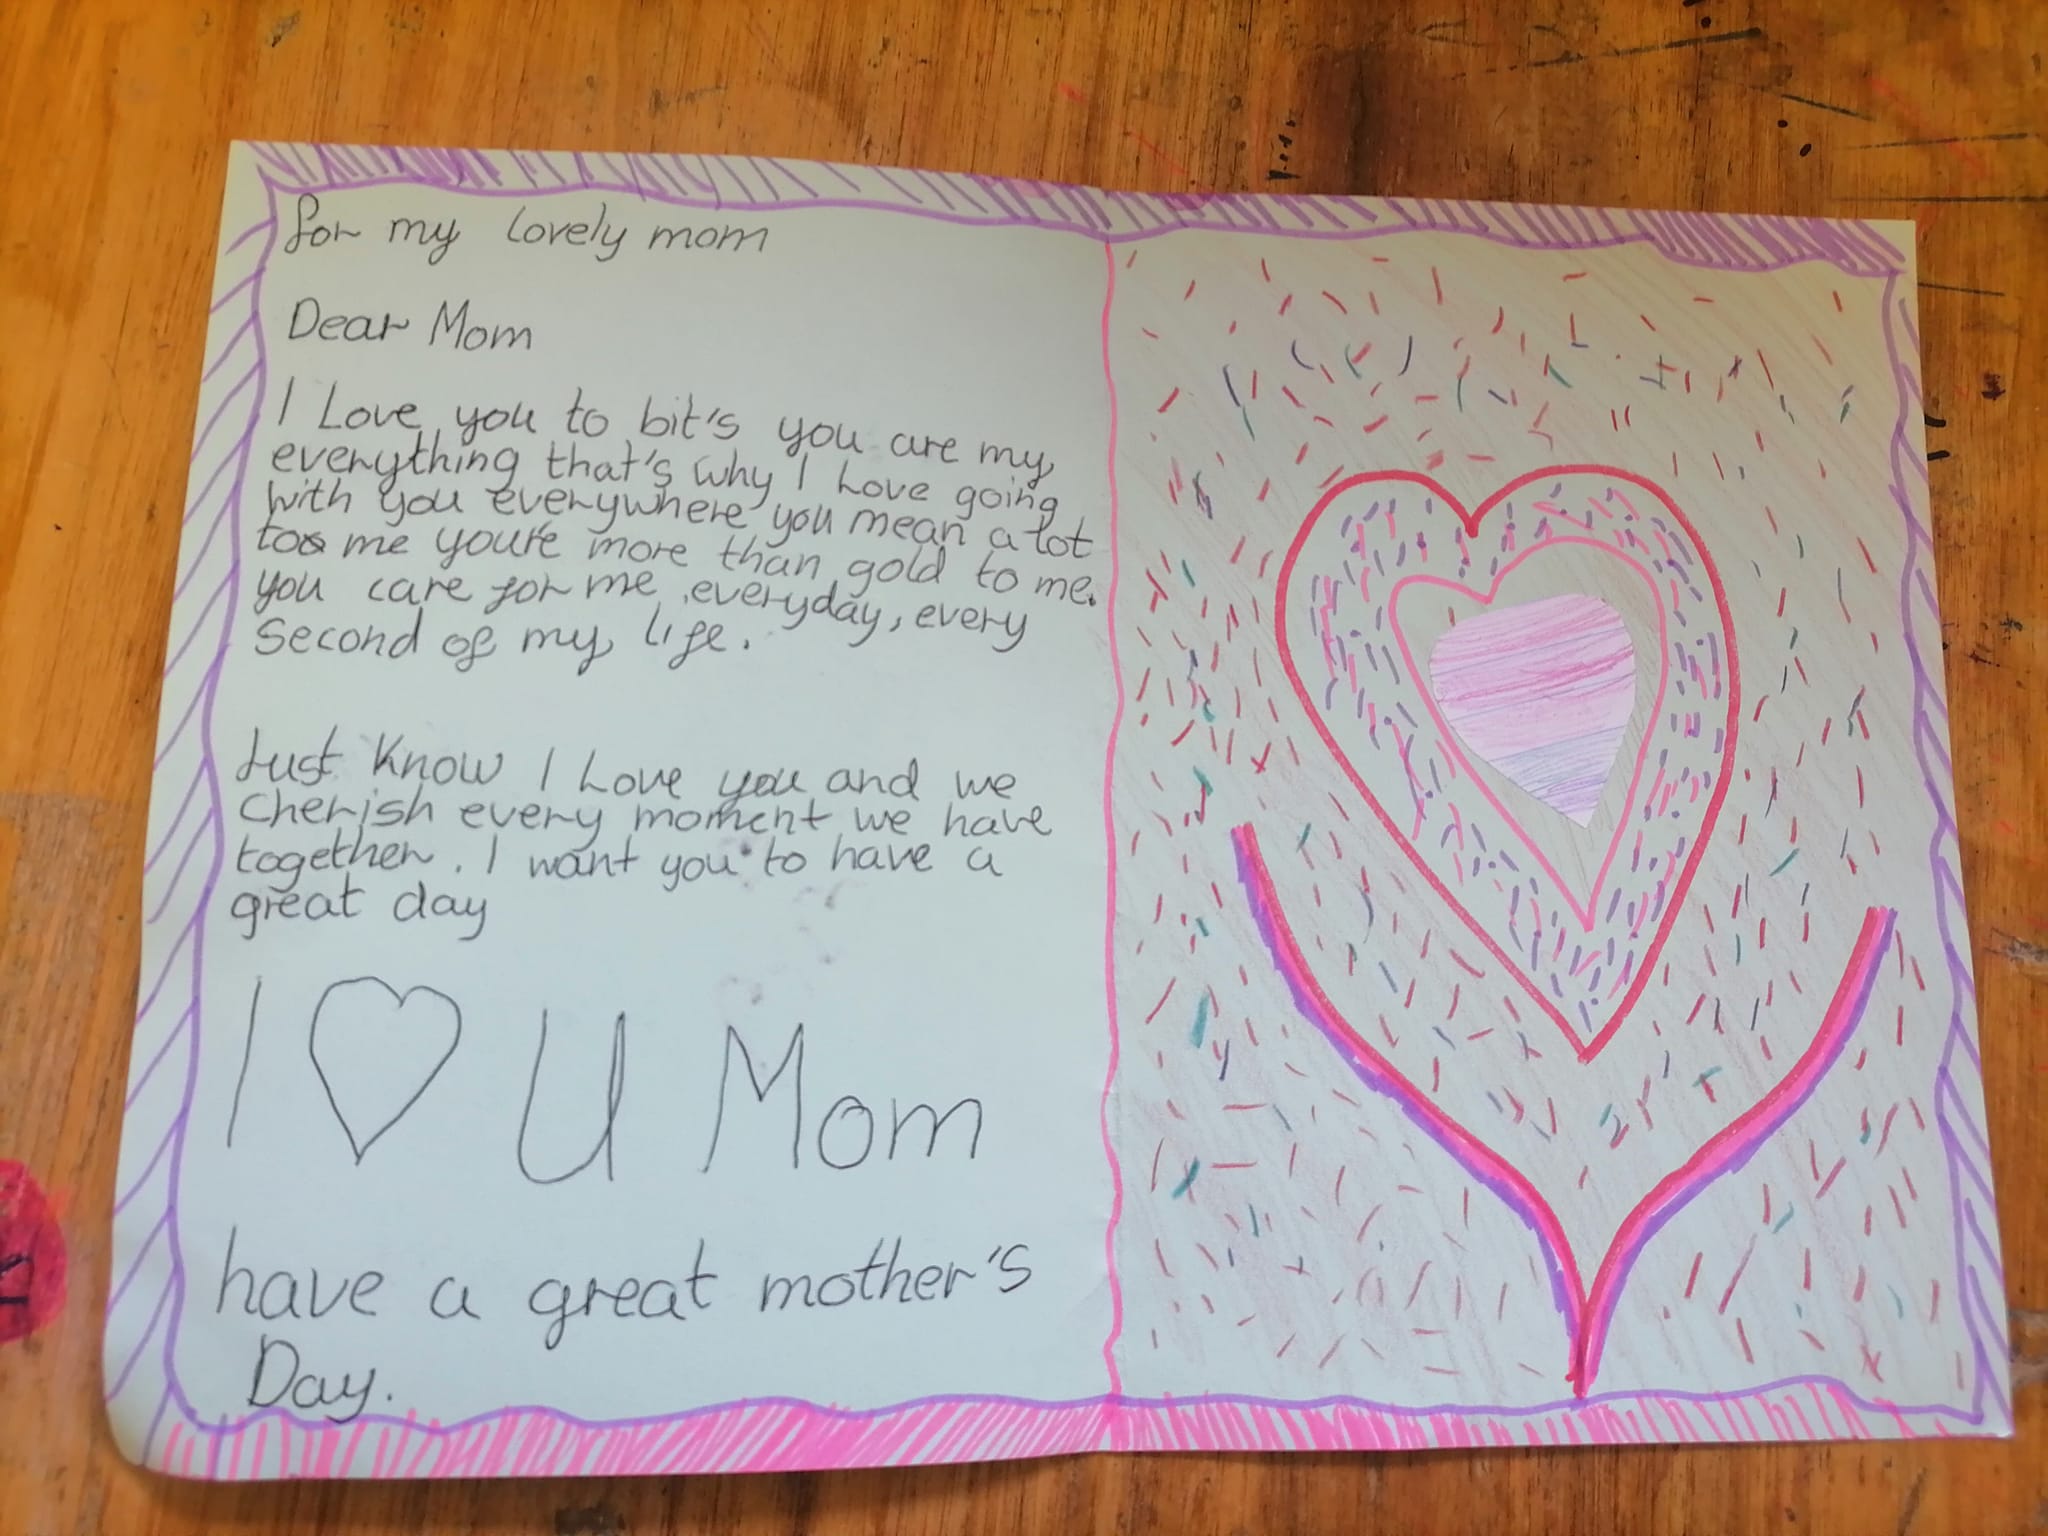 for my lovely mom
Dear Mom
I Love you to bit's you are my
everything that's why I Love going
with you everywhere you mean a lot
too me you're more than gold to me.
you care for me everyday, every
second of my life.
Just Know I Love you and we
cherish every moment we have
together. I want you to have a
great day
I ♡ U Mom
have a great mother's
Day.